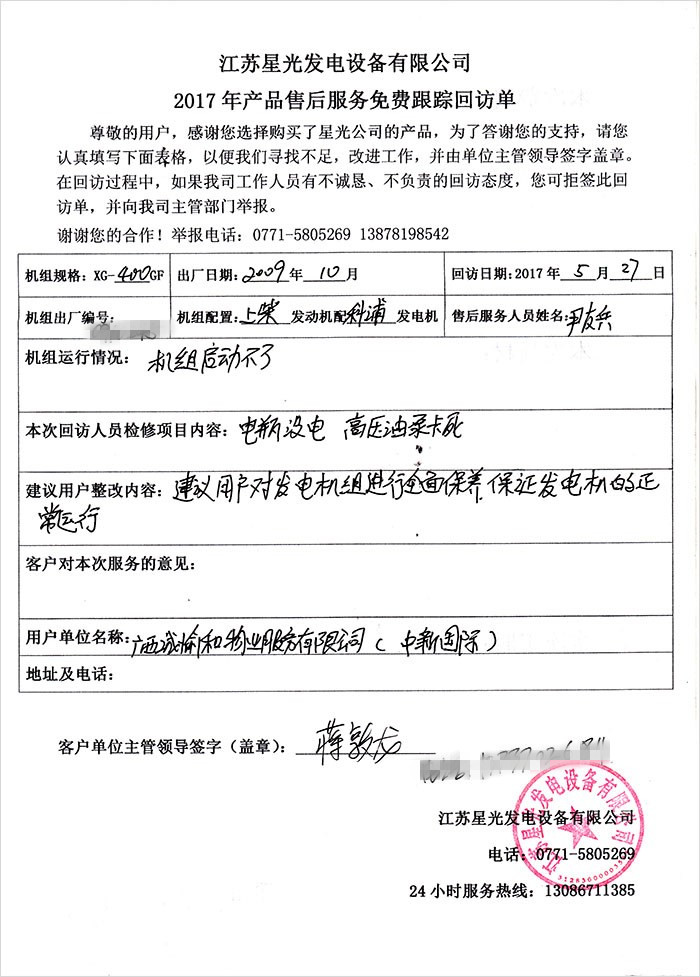 江苏星光发电设备有限公司
2017年产品售后服务免费跟踪回访单
尊敬的用户，感谢您选择购买了星光公司的产品，为了答谢您的支持，请您
认真填写下面表格，以便我们寻找不足，改进工作，并由单位主管领导签字盖章。
在回访过程中，如果我司工作人员有不诚恳、不负责的回访态度，您可拒签此回
访单，并向我司主管部门举报。
谢谢您的合作！举报电话：0771-5805269 13878198542
机组规格：XG-400GF 出厂日期：2009年 10月 回访日期：2017年 5月 27日
机组出厂编号： 机组配置：上柴 发动机配 科浦 发电机 售后服务人员姓名：尹友兵
机组运行情况： 机组启动不了
本次回访人员检修项目内容：电瓶没电 高压油泵卡死
建议用户整改内容：建议用户对发电机组进行全面保养,保证发电机的正
常运行
客户对本次服务的意见：
用户单位名称：广西诚愉和物业服务有限公司（中新国际）
地址及电话：
客户单位主管领导签字（盖章）：蒋敦龙
江苏星光发电设备有限公司
电话：0771-5805269
24小时服务热线：13086711385
江苏星光发电设备有限公司